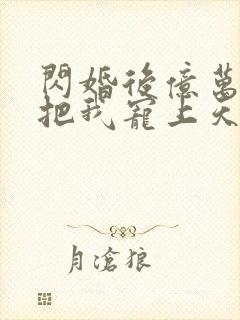 閃婚後億萬
把我寵上天
月滄狼